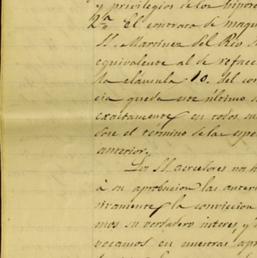 y privilegios de los hipote
2ª El contrato de maqui
M. Martinez del Rio se
equivalente al de refacc
la cláusula 10. del con
cia queda este último s
exactamente en todos su
dose el termino de la espe
anterior.
Los SS. acreedores no n
á su aprobacion las anteri
rivamente la conviccion
mos su verdadero interes, y
vocamos en nuestras apr